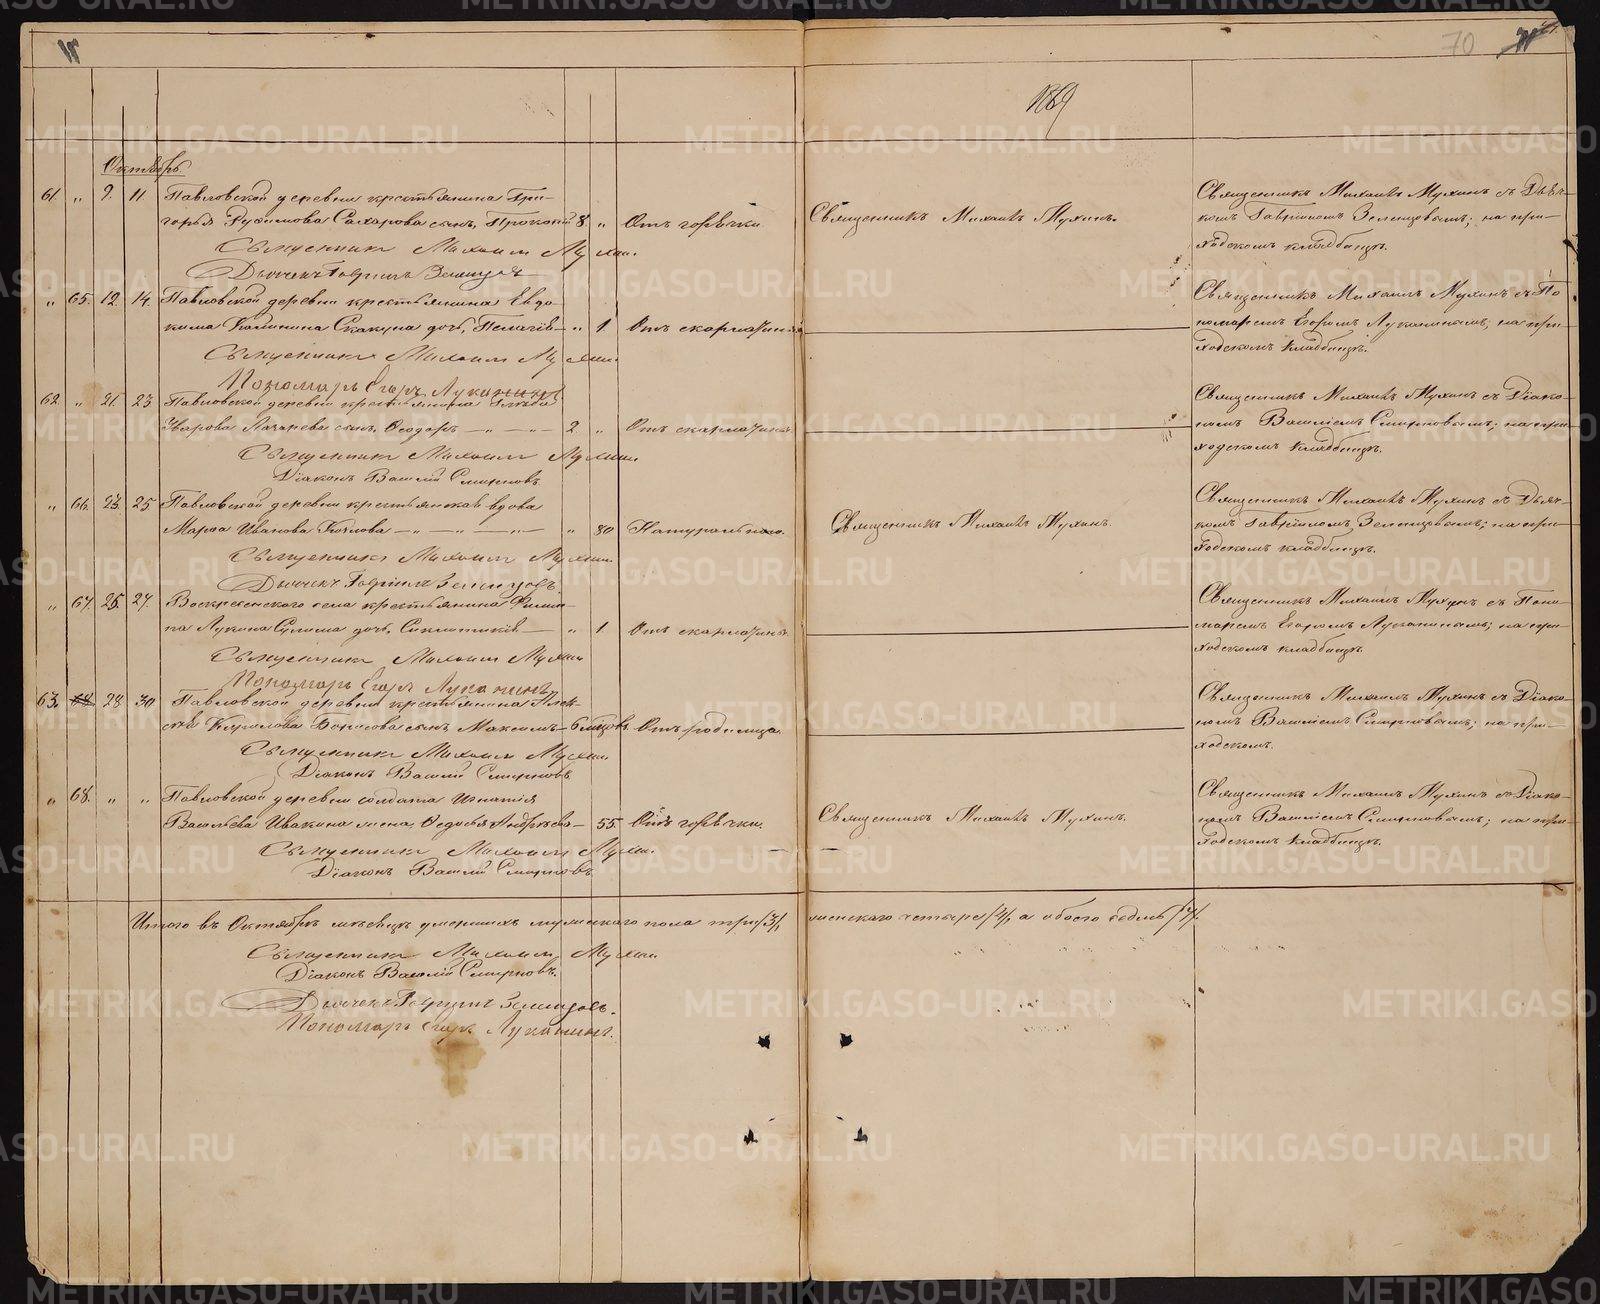 70
1869
Октябрь
61. „ 9. 11 Павловской деревни крестьянина Гри-
горья Сахарова сынъ, Прокопій 8 „ Отъ горячки Священникъ Михаилъ Мухинъ. Священникъ Михаилъ Мухинъ съ Дьяч-
комъ Гавріиломъ Зеленцовымъ; на при-
ходскомъ кладбищѣ.
Священникъ Михаилъ Мухинъ.
Дьячекъ Гавріилъ Зеленцовъ
„ 65. 12. 14. Павловской деревни крестьянина Евдо-
кима Калинина дочь, Пелагія — „ 1. Отъ скарлатины Священникъ Михаилъ Мухинъ съ По-
номаремъ Егоромъ Луканинымъ; на при-
ходскомъ кладбищѣ.
Священникъ Михаилъ Мухинъ.
Пономарь Егоръ Луканинъ
62. „ 21. 23 Павловской деревни крестьянина Глѣба
Уварова Лазарева сынъ, Ѳеодоръ — „ — „ — 2 „ Отъ скарлатины Священникъ Михаилъ Мухинъ съ Діако-
номъ Василіемъ Смирновымъ; на при-
ходскомъ кладбищѣ.
Священникъ Михаилъ Мухинъ.
Діаконъ Василій Смирновъ
„ 66. 23. 25 Павловской деревни крестьянская вдова
Марѳа Иванова — „ — „ — „ 80 Натурально. Священникъ Михаилъ Мухинъ. Священникъ Михаилъ Мухинъ съ Дьяч-
комъ Гавріиломъ Зеленцовымъ; на при-
ходскомъ кладбищѣ.
Священникъ Михаилъ Мухинъ.
Дьячекъ Гавріилъ Зеленцовъ.
„ 67. 25. 27. Воскресенского села крестьянина Филип-
па Лукина дочь, Синклитикія — „ 1. Отъ скарлатины Священникъ Михаилъ Мухинъ съ Поно-
маремъ Егоромъ Луканинымъ; на при-
ходскомъ кладбищѣ.
Священникъ Михаилъ Мухинъ
Пономарь Егоръ Луканинъ
63. 28 30 Павловской деревни крестьянина Алек-
сѣя Кирилова Борисова сынъ Максимъ — 6 мѣсяц. Отъ родимца. Священникъ Михаилъ Мухинъ съ Діако-
номъ Василіемъ Смирновымъ; на при-
ходскомъ.
Священникъ Михаилъ Мухинъ.
Діаконъ Василій Смирновъ
„ 68. „ „ Павловской деревни солдата Игнатія
Васильева Ивакина жена, Ѳедосья Андреева — 55. Отъ горячки. Священникъ Михаилъ Мухинъ. Священникъ Михаилъ Мухинъ съ Діако-
номъ Василіемъ Смирновымъ; на при-
ходскомъ кладбищѣ.
Священникъ Михаилъ Мухинъ.
Діаконъ Василій Смирновъ.
Итого въ Октябрѣ мѣсяцѣ умершихъ мужескаго пола три /3/, женскаго четыре /4/, а обоего седмь /7/.
Священникъ Михаилъ Мухинъ.
Діаконъ Василій Смирновъ.
Дьячекъ Гавріилъ Зеленцовъ.
Пономарь Егоръ Луканинъ.
METRIKI.GASO-URAL.RU